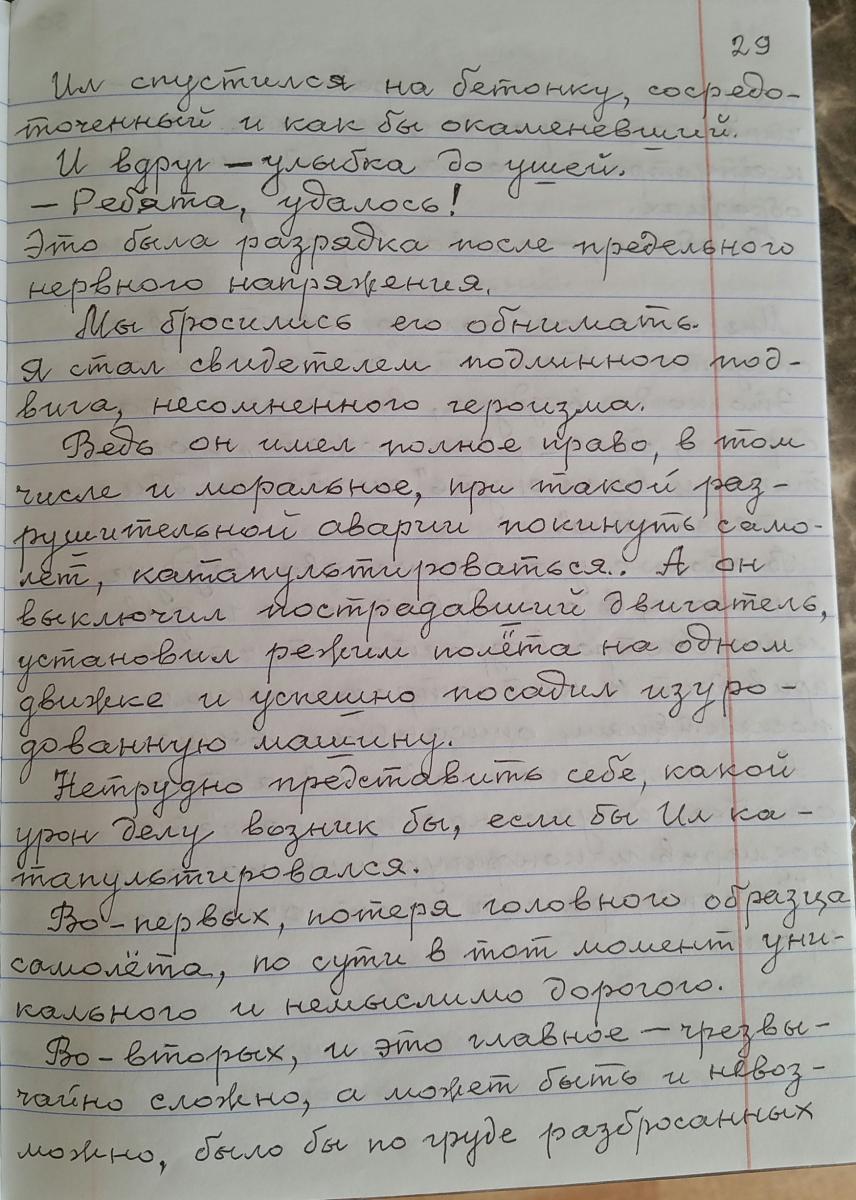 29
Ил спустился на бетонку, сосредо-
точенный и как бы окаменевший.
И вдруг – улыбка до ушей.
– Ребята, удалось!
Это была разрядка после предельного
нервного напряжения.
Мы бросились его обнимать.
Я стал свидетелем подлинного под-
вига, несомненного героизма.
Ведь он имел полное право, в том
числе и моральное, при такой раз-
рушительной аварии покинуть само-
лёт, катапультироваться.. А он
выключил пострадавший двигатель,
установил режим полёта на одном
движке и успешно посадил изуро-
дованную машину.
Нетрудно представить себе, какой
урон делу возник бы, если бы Ил ка-
тапультировался.
Во-первых, потеря головного образца
самолёта, по сути в тот момент уни-
кального и немыслимо дорогого.
Во-вторых, и это главное – чрезвы-
чайно сложно, а может быть и невоз-
можно, было бы по груде разбросанных